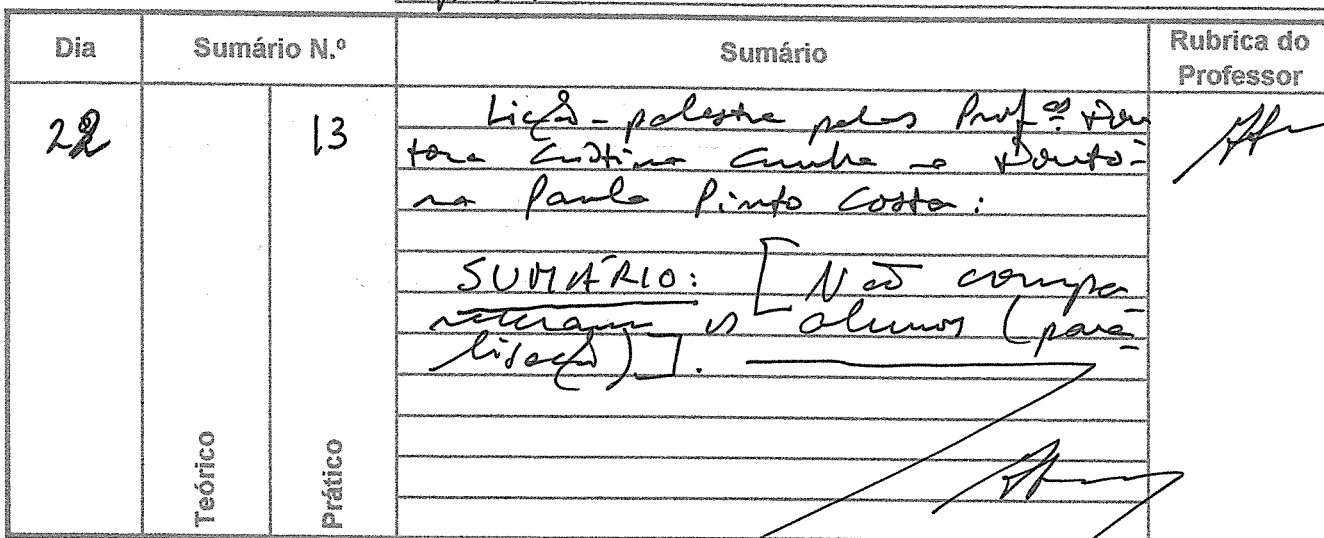 Dia Sumário N.º Sumário Rubrica do Professor
22 13 Lição - palestra pelas Prof.as Dou
tora Cristina Cunha e Douto-
ra Paula Pinto Costa:
SUMÁRIO: [Não compa
receram os alunos (para-
lisação)].
Teórico Prático